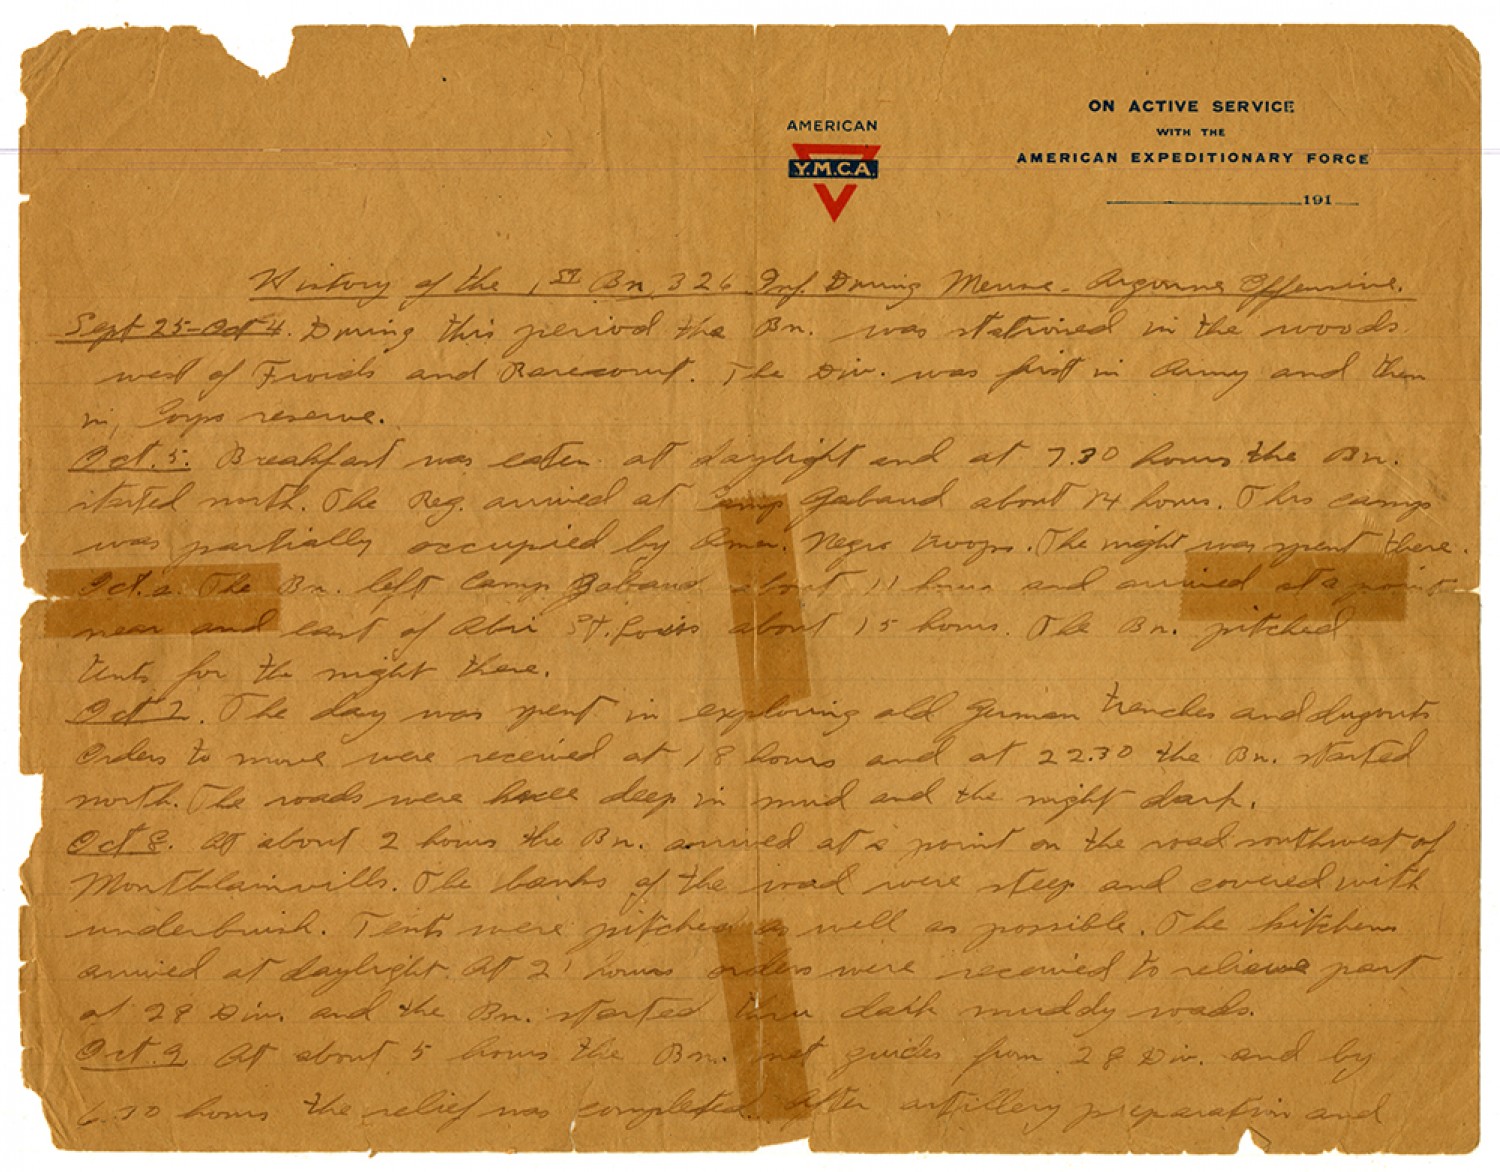 ON ACTIVE SERVICE
WITH THE
AMERICAN EXPEDITIONARY FORCE
AMERICAN
Y.M.C.A.
191
History of the 1st Bn 326 Inf. During Meuse-Argonne Offensive.
Sept 25-Oct 4. During this period the Bn. was stationed in the woods
west of Froids and Rarecourt. The Div. was first in Army and then
in Corps reserve.
Oct. 5. Breakfast was eaten at daylight and at 7.30 hours the Bn.
started north. The Reg. arrived at Camp Gabaud about 14 hours. This camp
was partially occupied by Amer. Negro troops. The night was spent there.
Oct. 6. The Bn. left Camp Gabaud about 11 hours and arrived at a point
near and east of Abri St. Louis about 15 hours. The Bn. pitched
tents for the night there.
Oct 7. The day was spent in exploring old German trenches and dugouts
Orders to move were received at 18 hours and at 22.30 the Bn. started
north. The roads were knee deep in mud and the night dark.
Oct 8. At about 2 hours the Bn. arrived at a point on the road southwest of
Montblainvills. The banks of the road were steep and covered with
underbrush. Tents were pitched as well as possible. The kitchens
arrived at daylight. At 21 hours orders were received to relieve part
of 28 Div. and the Bn. started thru dark muddy roads.
Oct. 9 At about 5 hours the Bn. met guides from 28 Div. and by
6.30 hours the relief was completed. After artillery preparation and